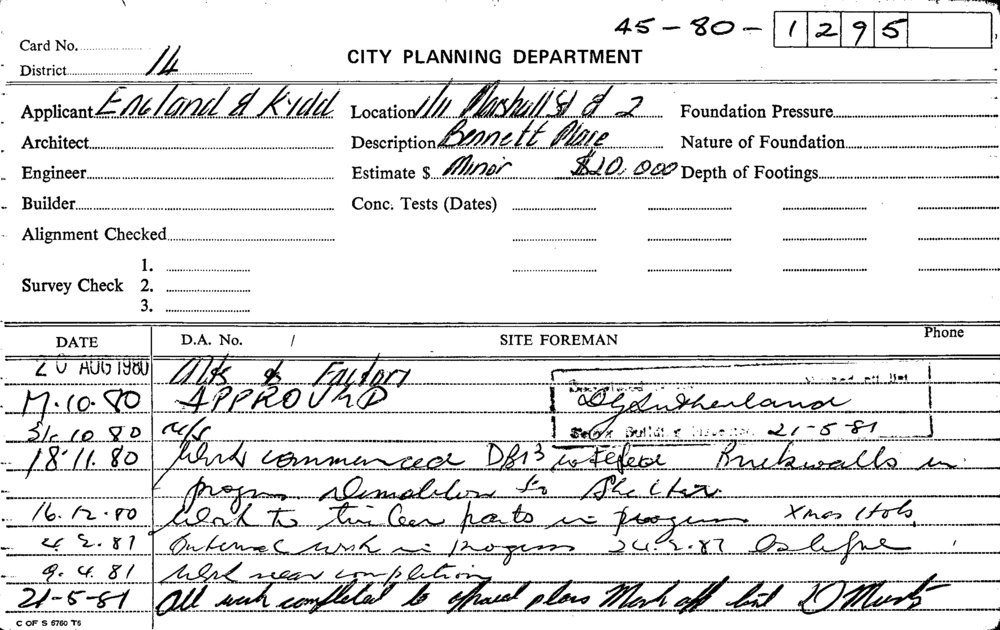 45-80-1295
Card No.
District 14
CITY PLANNING DEPARTMENT
Applicant England & Kidd Location 1/11 Marshall St & 2 Foundation Pressure
Architect Description Bennett Place Nature of Foundation
Engineer Estimate $ Minor $20,000 Depth of Footings
Builder Conc. Tests (Dates)
Alignment Checked
1.
Survey Check 2.
3.
DATE D.A. No. / SITE FOREMAN Phone
20 AUG 1980 Alts to Factory
17.10.80 APPROVED DG Sutherland
31.10.80 n/s Senior Building 21-5-81
18.11.80 Work commenced Brickwalls in
progress Demolition to Shelter
16.12.80 Work to parts in progress Xmas Hols
4.2.81 Internal work in progress
9.4.81 Work near completion
21-5-81 All work completed to approved plans Mark off list
C OF S 6760 T6